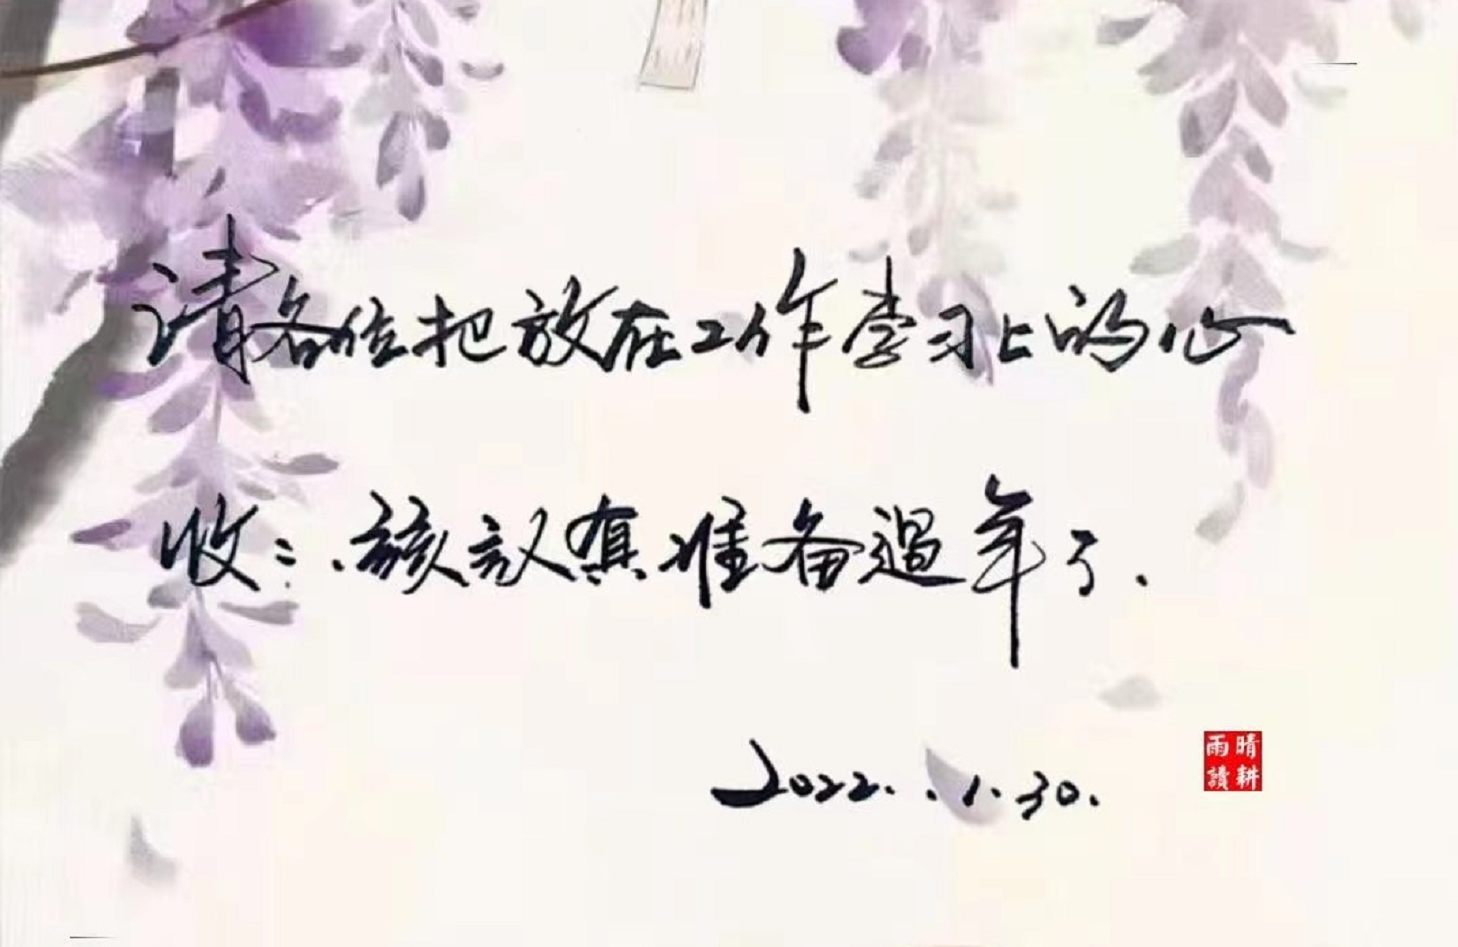 请各位把放在工作学习上的心
收收.该认真准备过年了.
2022..1.30.
晴耕
雨读